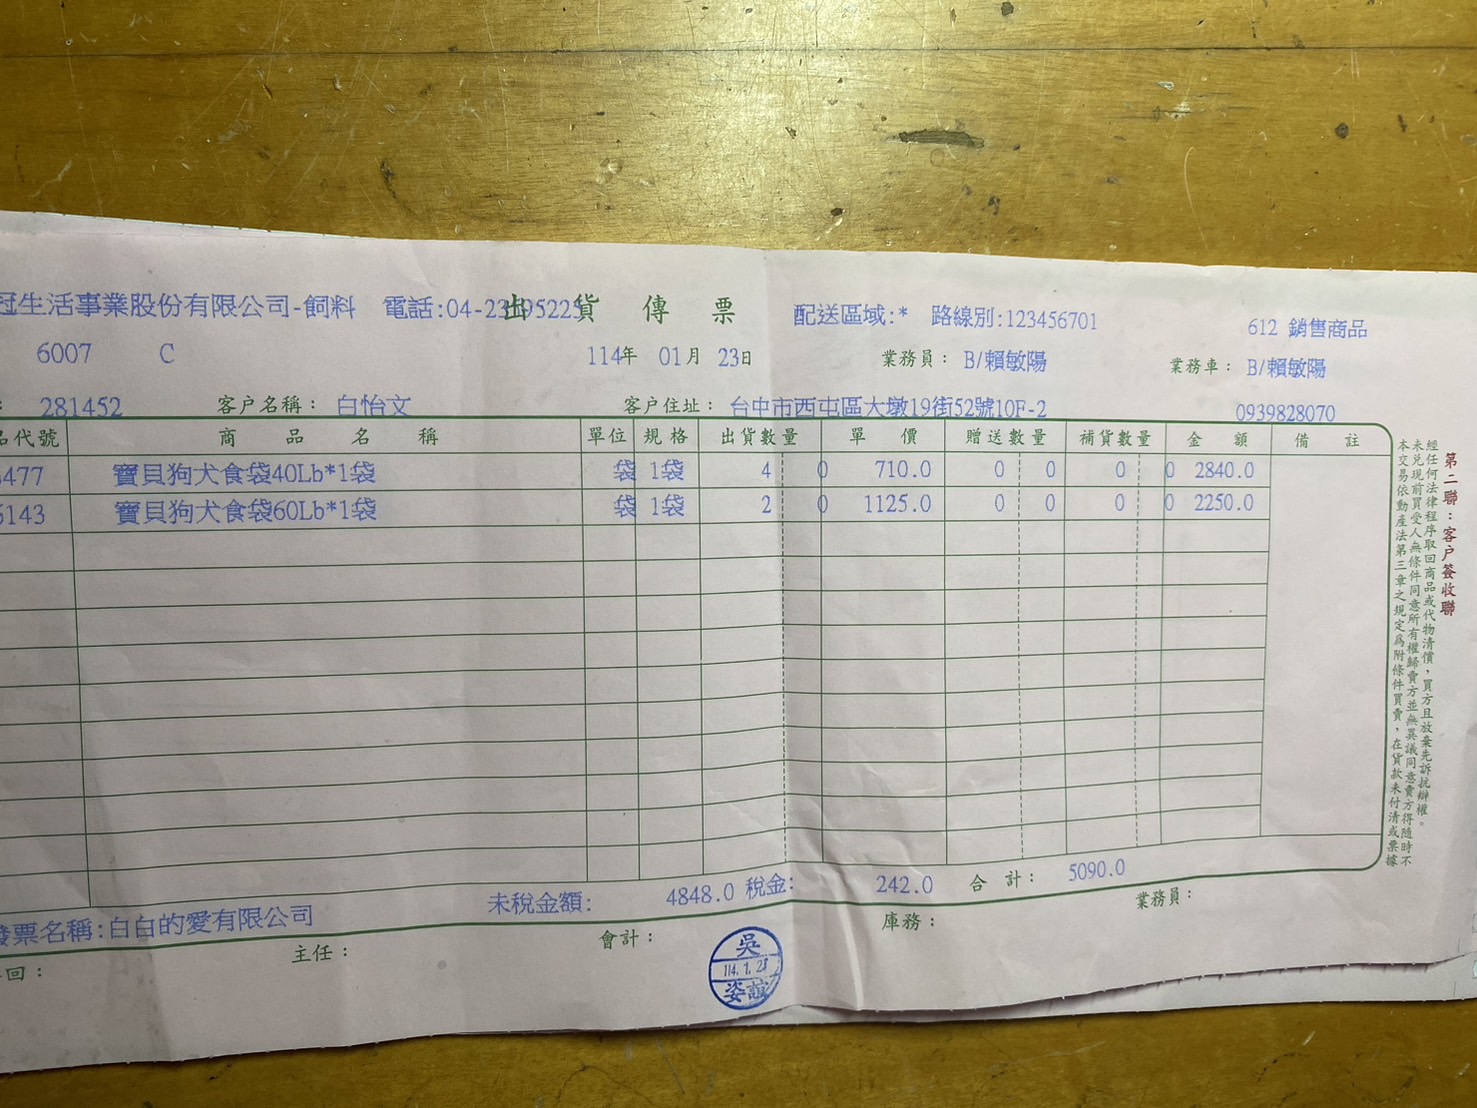 冠生活事業股份有限公司-飼料 電話:04-23 95225 出貨傳票 配送區域:* 路線別:123456701 612 銷售商品
6007 C 114年 01月 23日 業務員： B/賴敏陽 業務車： B/賴敏陽
281452 客戶名稱： 白怡文 客戶住址： 台中市西屯區大墩19街52號10F-2 0939828070
名代號 商品名稱 單位 規格 出貨數量 單價 贈送數量 補貨數量 金額 備註
477 寶貝狗犬食袋40Lb*1袋 袋 1袋 4 0 710.0 0 0 0 0 2840.0
6143 寶貝狗犬食袋60Lb*1袋 袋 1袋 2 0 1125.0 0 0 0 0 2250.0
未稅金額: 4848.0 稅金: 242.0 合計： 5090.0
發票名稱:白白的愛有限公司
回： 主任： 會計： 庫務： 業務員：
吳
114.1.2
姿誼
第二聯：客戶簽收聯
本交易依動產法第三章之規定為附條件買賣，在貨款未付清或票據
未兌現前買受人無條件同意所有權歸賣方並無異議同意賣方得隨時不
經任何法律程序取回商品或代物清償，買方且放棄先訴抗辯權。